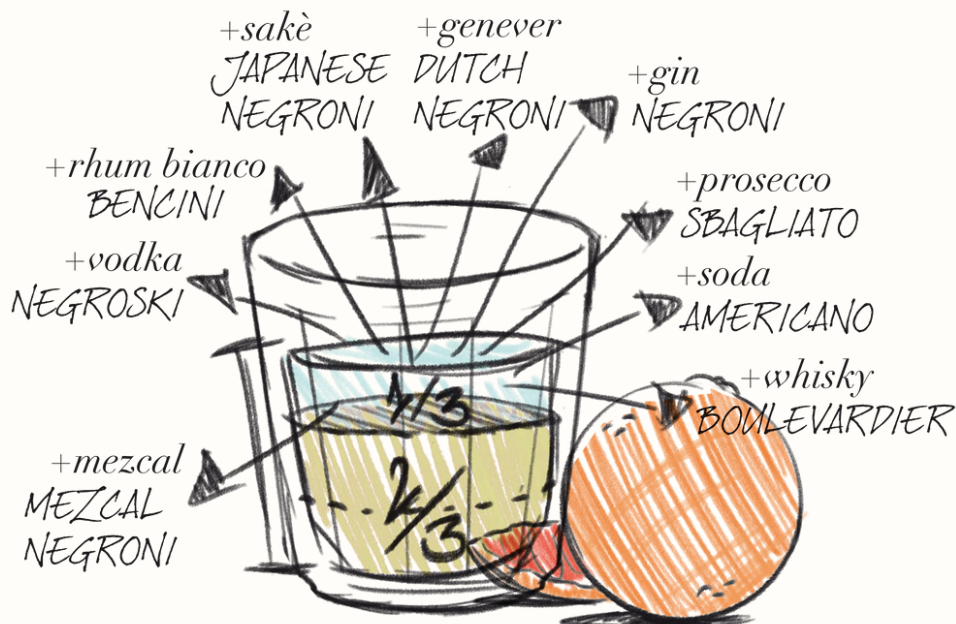 +sakè
JAPANESE
NEGRONI
+genever
DUTCH
NEGRONI
+gin
NEGRONI
+rhum bianco
BENCINI
+prosecco
SBAGLIATO
+vodka
NEGROSKI
+soda
AMERICANO
+whisky
BOULEVARDIER
+mezcal
MEZCAL
NEGRONI
1/3
2/3